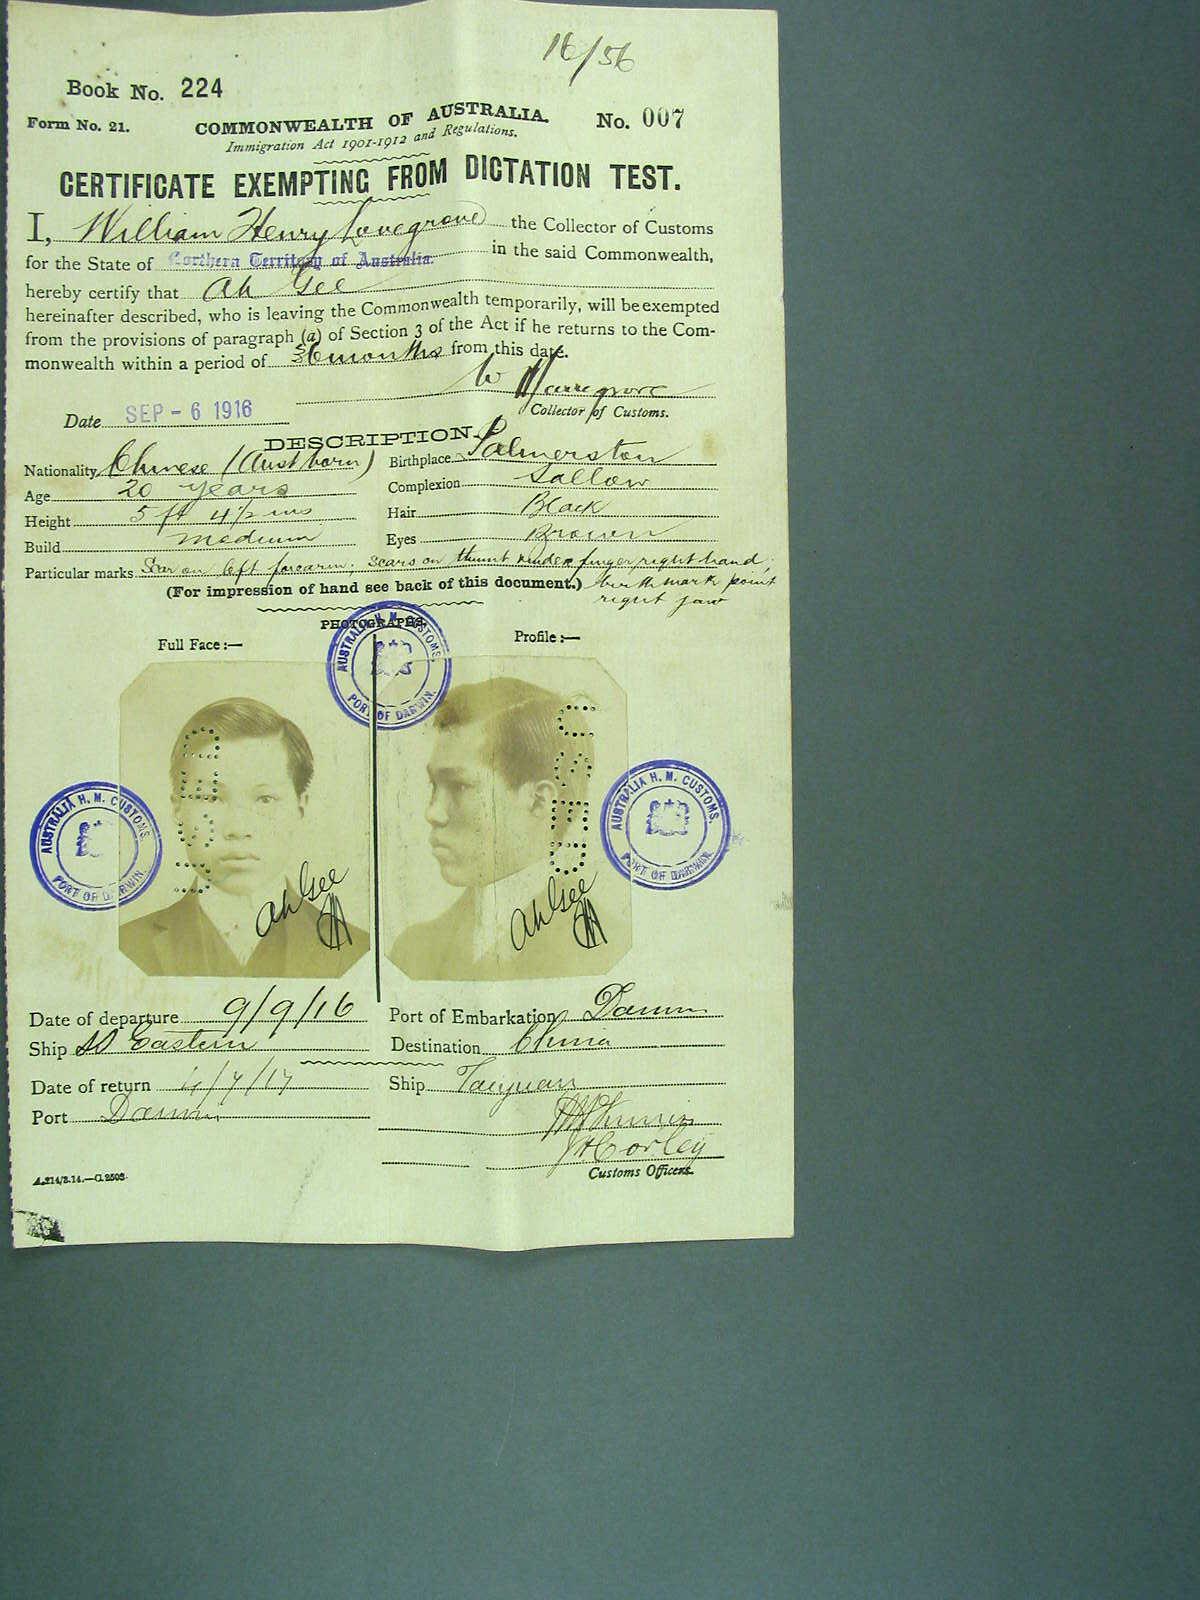 16/56
Book No. 224
Form No. 21. COMMONWEALTH OF AUSTRALIA. No. 007
Immigration Act 1901-1912 and Regulations.
CERTIFICATE EXEMPTING FROM DICTATION TEST.
I, William Henry Lovegrove the Collector of Customs
for the State of Northern Territory of Australia. in the said Commonwealth,
hereby certify that Ah Gee
hereinafter described, who is leaving the Commonwealth temporarily, will be exempted
from the provisions of paragraph (a) of Section 3 of the Act if he returns to the Com-
monwealth within a period of 36 months from this date.
W H Lovegrove
Collector of Customs.
Date SEP - 6 1916
DESCRIPTION.
Nationality Chinese (Aust born) Birthplace Palmerston
Age 20 years Complexion Sallow
Height 5 ft 4½ ins Hair Black
Build medium Eyes Brown
Particular marks Scar on left forearm; scars on thumb & index finger right hand;
(For impression of hand see back of this document.) birth mark point
right jaw
PHOTOGRAPHS.
Full Face :— Profile :—
AUSTRALIA H. M. CUSTOMS. PORT OF DARWIN.
AUSTRALIA H. M. CUSTOMS. PORT OF DARWIN.
AUSTRALIA H. M. CUSTOMS. PORT OF DARWIN.
USED
USED
Ah Gee
Ah Gee
Date of departure 9/9/16 Port of Embarkation Darwin
Ship SS Eastern Destination China
Date of return 4/7/17 Ship Taiyuan
Port Darwin
JHCorley
Customs Officers.
A.214/3.14.—C.2503